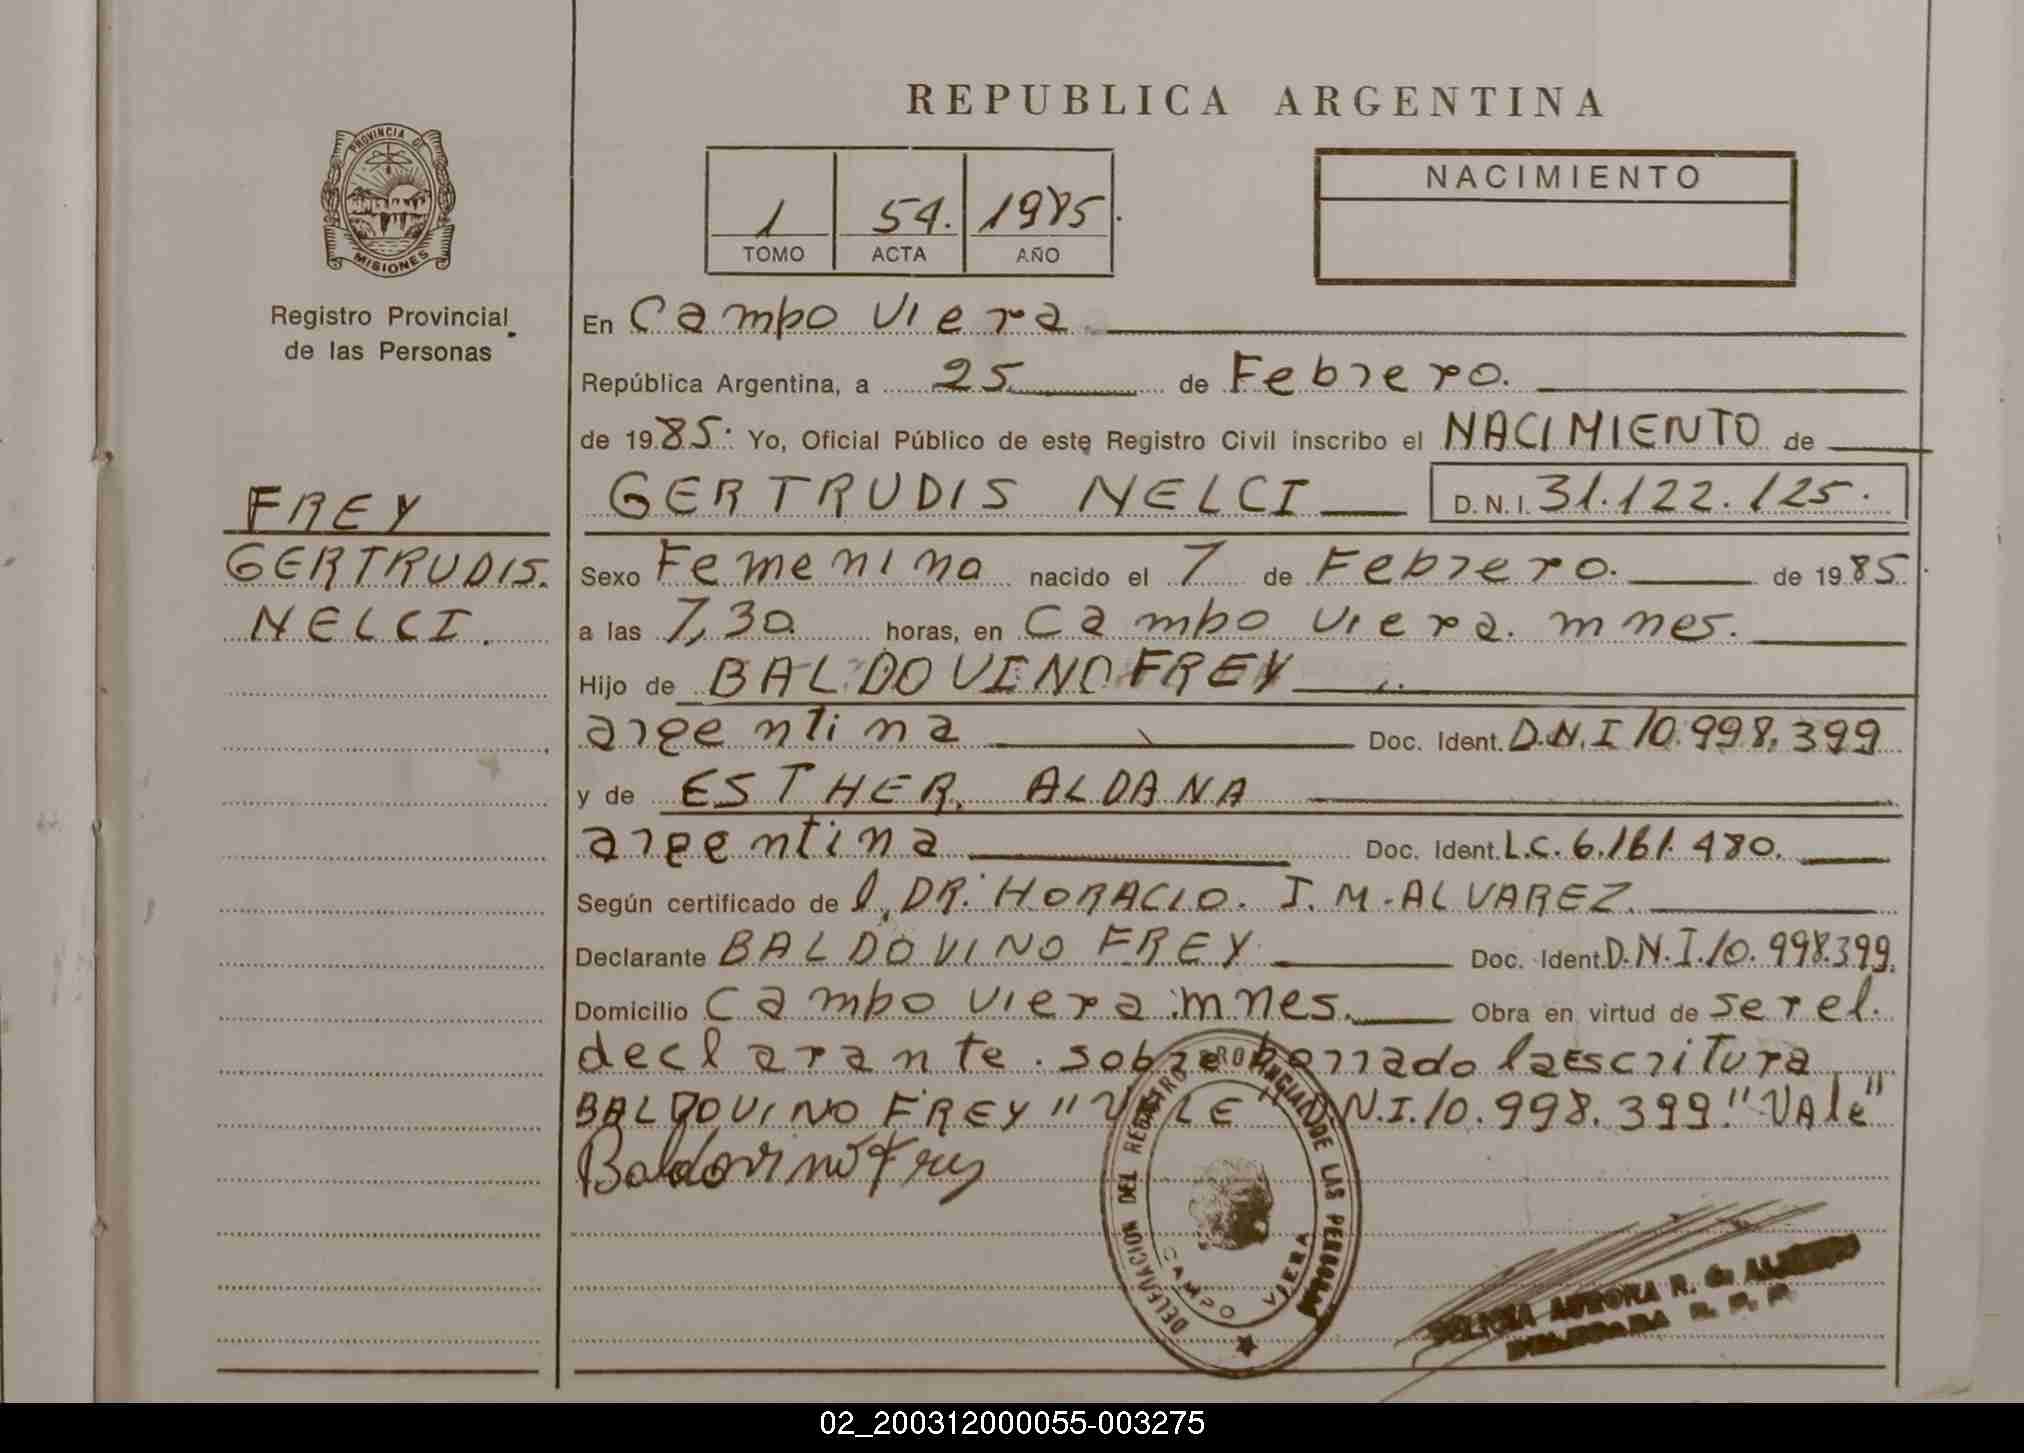 REPUBLICA ARGENTINA
PROVINCIA DE
MISIONES
Registro Provincial
de las Personas
FREY
GERTRUDIS.
NELCI.
1 54. 1985.
TOMO ACTA AÑO
NACIMIENTO
En Campo Viera
República Argentina, a 25 de Febrero.
de 1985. Yo, Oficial Público de este Registro Civil inscribo el NACIMIENTO de
GERTRUDIS NELCI D.N.I. 31.122.125.
Sexo Femenino nacido el 7 de Febrero. de 1985
a las 7,30 horas, en Campo Viera. mnes.
Hijo de BALDOVINO FREY
argentina Doc. Ident. D.N.I 10.998.399
y de ESTHER. ALDANA
argentina Doc. Ident. L.C. 6.161.480.
Según certificado de l, DR. HORACIO. I. M. ALVAREZ.
Declarante BALDOVINO FREY Doc. Ident. D.N.I. 10.998.399.
Domicilio Campo Viera mnes. Obra en virtud de ser el.
declarante. sobre borrado la escritura
BALDOVINO FREY "VALE" D.N.I. 10.998.399. "Vale"
Baldovino Frey
DELEGACION DEL REGISTRO PROVINCIAL DE LAS PERSONAS
CAMPO VIERA
AURORA R. G.
02_200312000055-003275